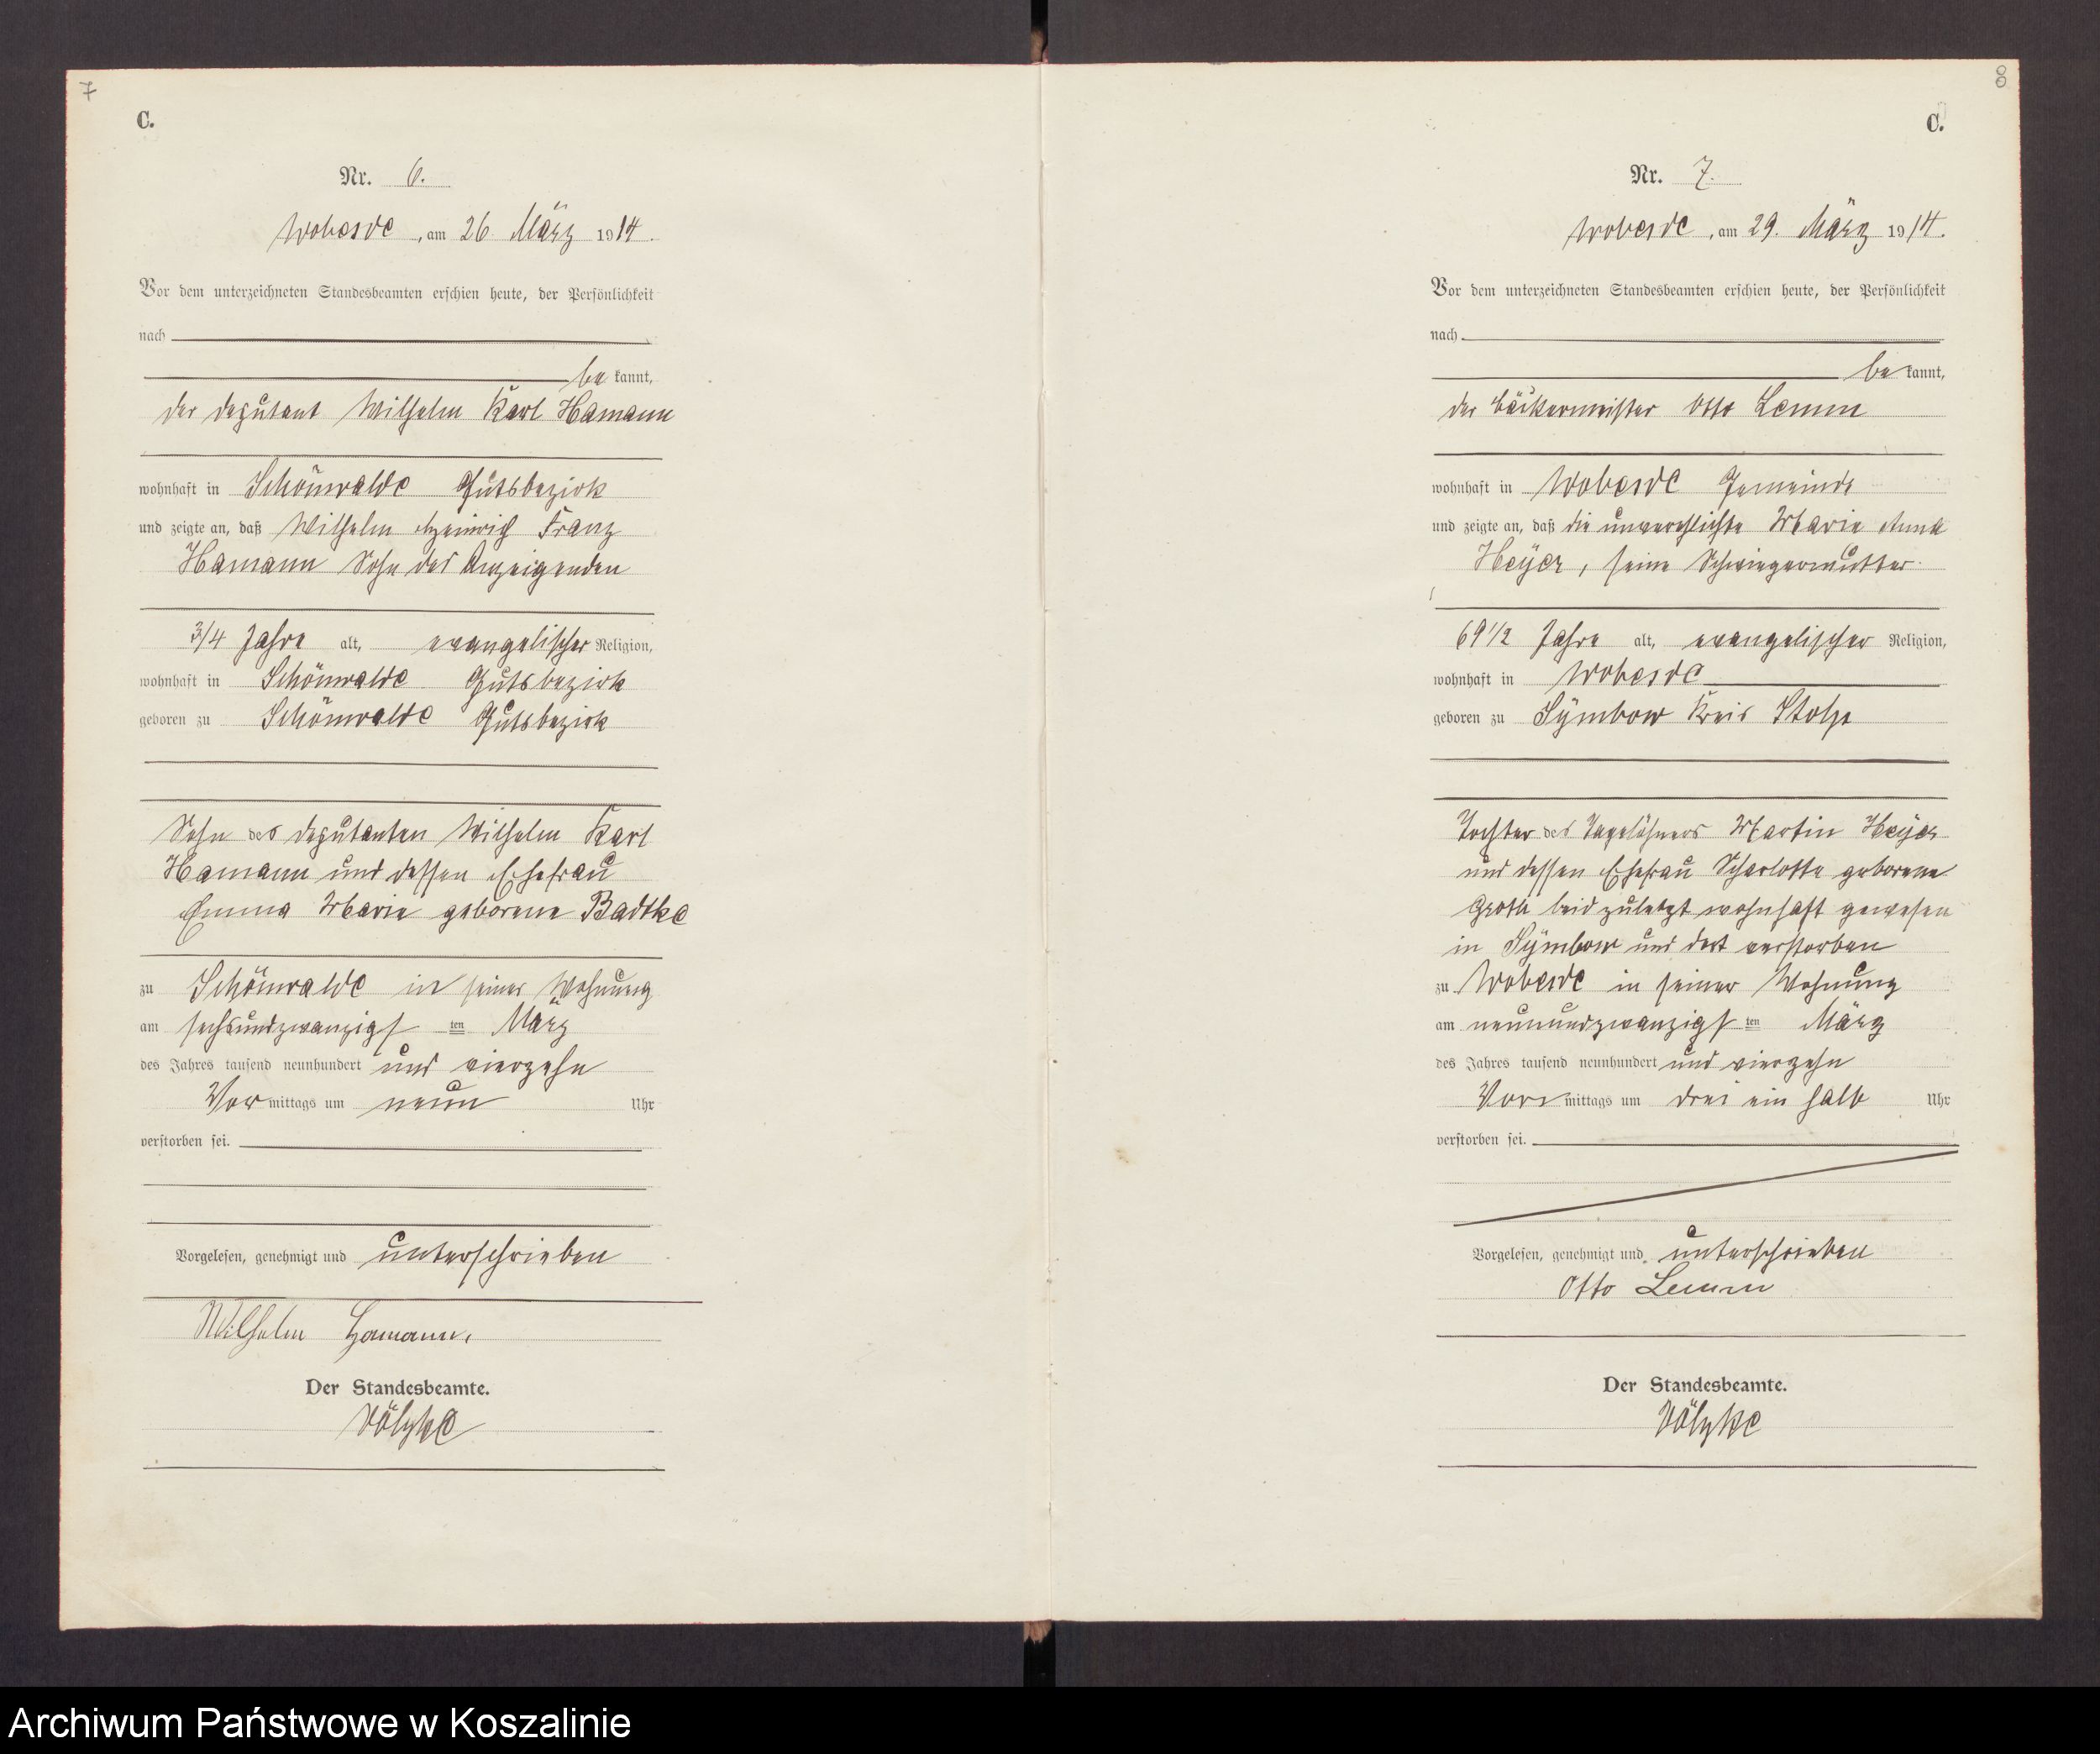 7
C.
Nr. 6.
Wobesde, am 26. März 1914.
Vor dem unterzeichneten Standesbeamten erschien heute, der Persönlichkeit
nach
bekannt,
der Deputant Wilhelm Karl Hamann
wohnhaft in Schönwalde Gutsbezirk
und zeigte an, daß Wilhelm Heinrich Franz
Hamann Sohn des Anzeigenden
3/4 Jahre alt, evangelischer Religion,
wohnhaft in Schönwalde Gutsbezirk
geboren zu Schönwalde Gutsbezirk
Sohn des Deputanten Wilhelm Karl
Hamann und dessen Ehefrau
Emma Marie geborene Badtke
zu Schönwalde in seiner Wohnung
am sechsundzwanzigsten März
des Jahres tausend neunhundert und vierzehn
Vormittags um neun Uhr
verstorben sei.
Vorgelesen, genehmigt und unterschrieben
Wilhelm Hamann.
Der Standesbeamte.
Völzke
8
C.
Nr. 7.
Wobesde, am 29. März 1914.
Vor dem unterzeichneten Standesbeamten erschien heute, der Persönlichkeit
nach
bekannt,
der Bäckermeister Otto Lemm
wohnhaft in Wobesde Gemeinde
und zeigte an, daß die unverehlichte Marie Anna
Heÿer, seine Schwiegermutter
69 1/2 Jahre alt, evangelischer Religion,
wohnhaft in Wobesde
geboren zu Sÿmbow Kreis Stolp
Tochter des Tagelöhners Martin Heÿer
und dessen Ehefrau Scharlotte geborene
Groth beid zuletzt wohnhaft gewesen
in Sÿmbow und dort verstorben
zu Wobesde in seiner Wohnung
am neunundzwanzigsten März
des Jahres tausend neunhundert und vierzehn
Vormittags um drei ein halb Uhr
verstorben sei.
Vorgelesen, genehmigt und unterschrieben
Otto Lemm
Der Standesbeamte.
Völzke
Archiwum Państwowe w Koszalinie